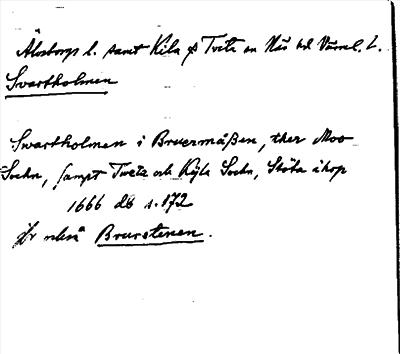 Älvsborgs l. samt Kila o Tveta sn Näs hd Värml. L.
Svartholmen
Swartholmen i Bruermåßen, ther Moo
Sochn, sampt Tweta och Kÿla Sochn, Stöta ihop
1666 db s. 172
jfr också Brurstenen.